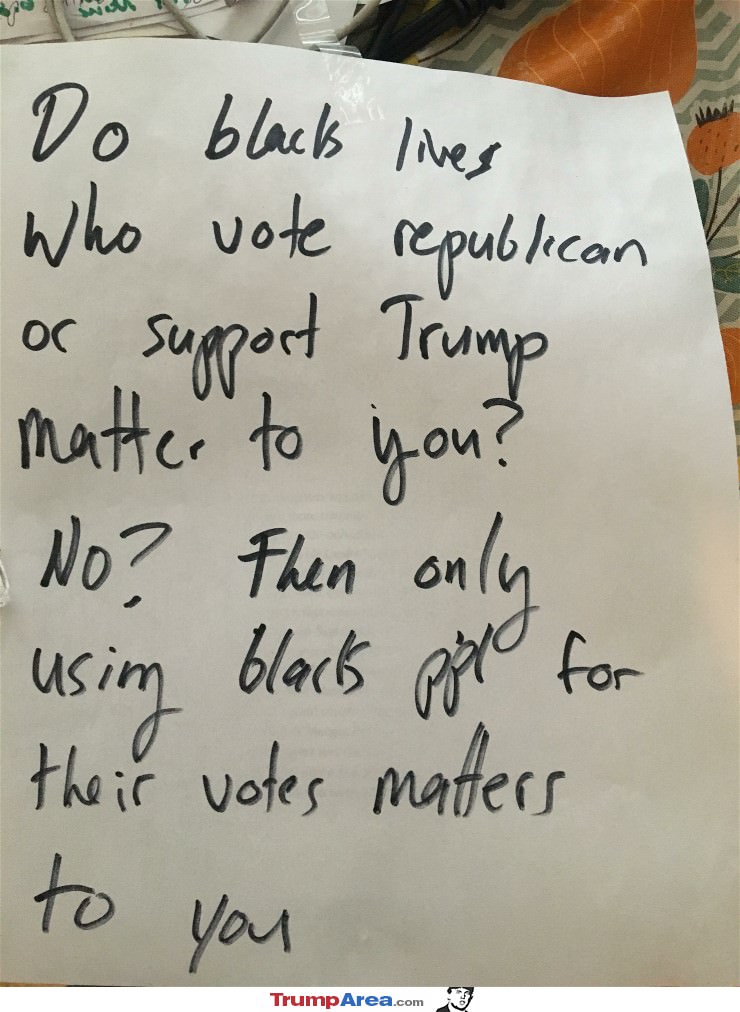 Do black lives
Who vote republican
or support Trump
matter to you?
No? Then only
using black ppl for
their votes matters
to you
TrumpArea.com